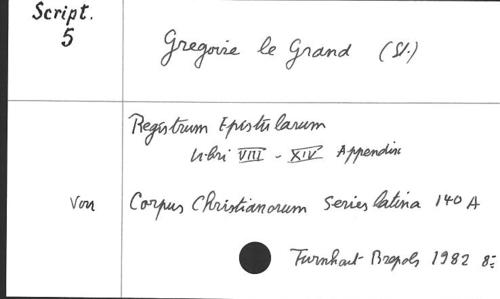 Script.
5
Gregoire le Grand (St.)
Registrum Epistularum
Libri VIII - XIV Appendix
Von Corpus Christianorum Series latina 140 A
Turnhout Brepols 1982 8º